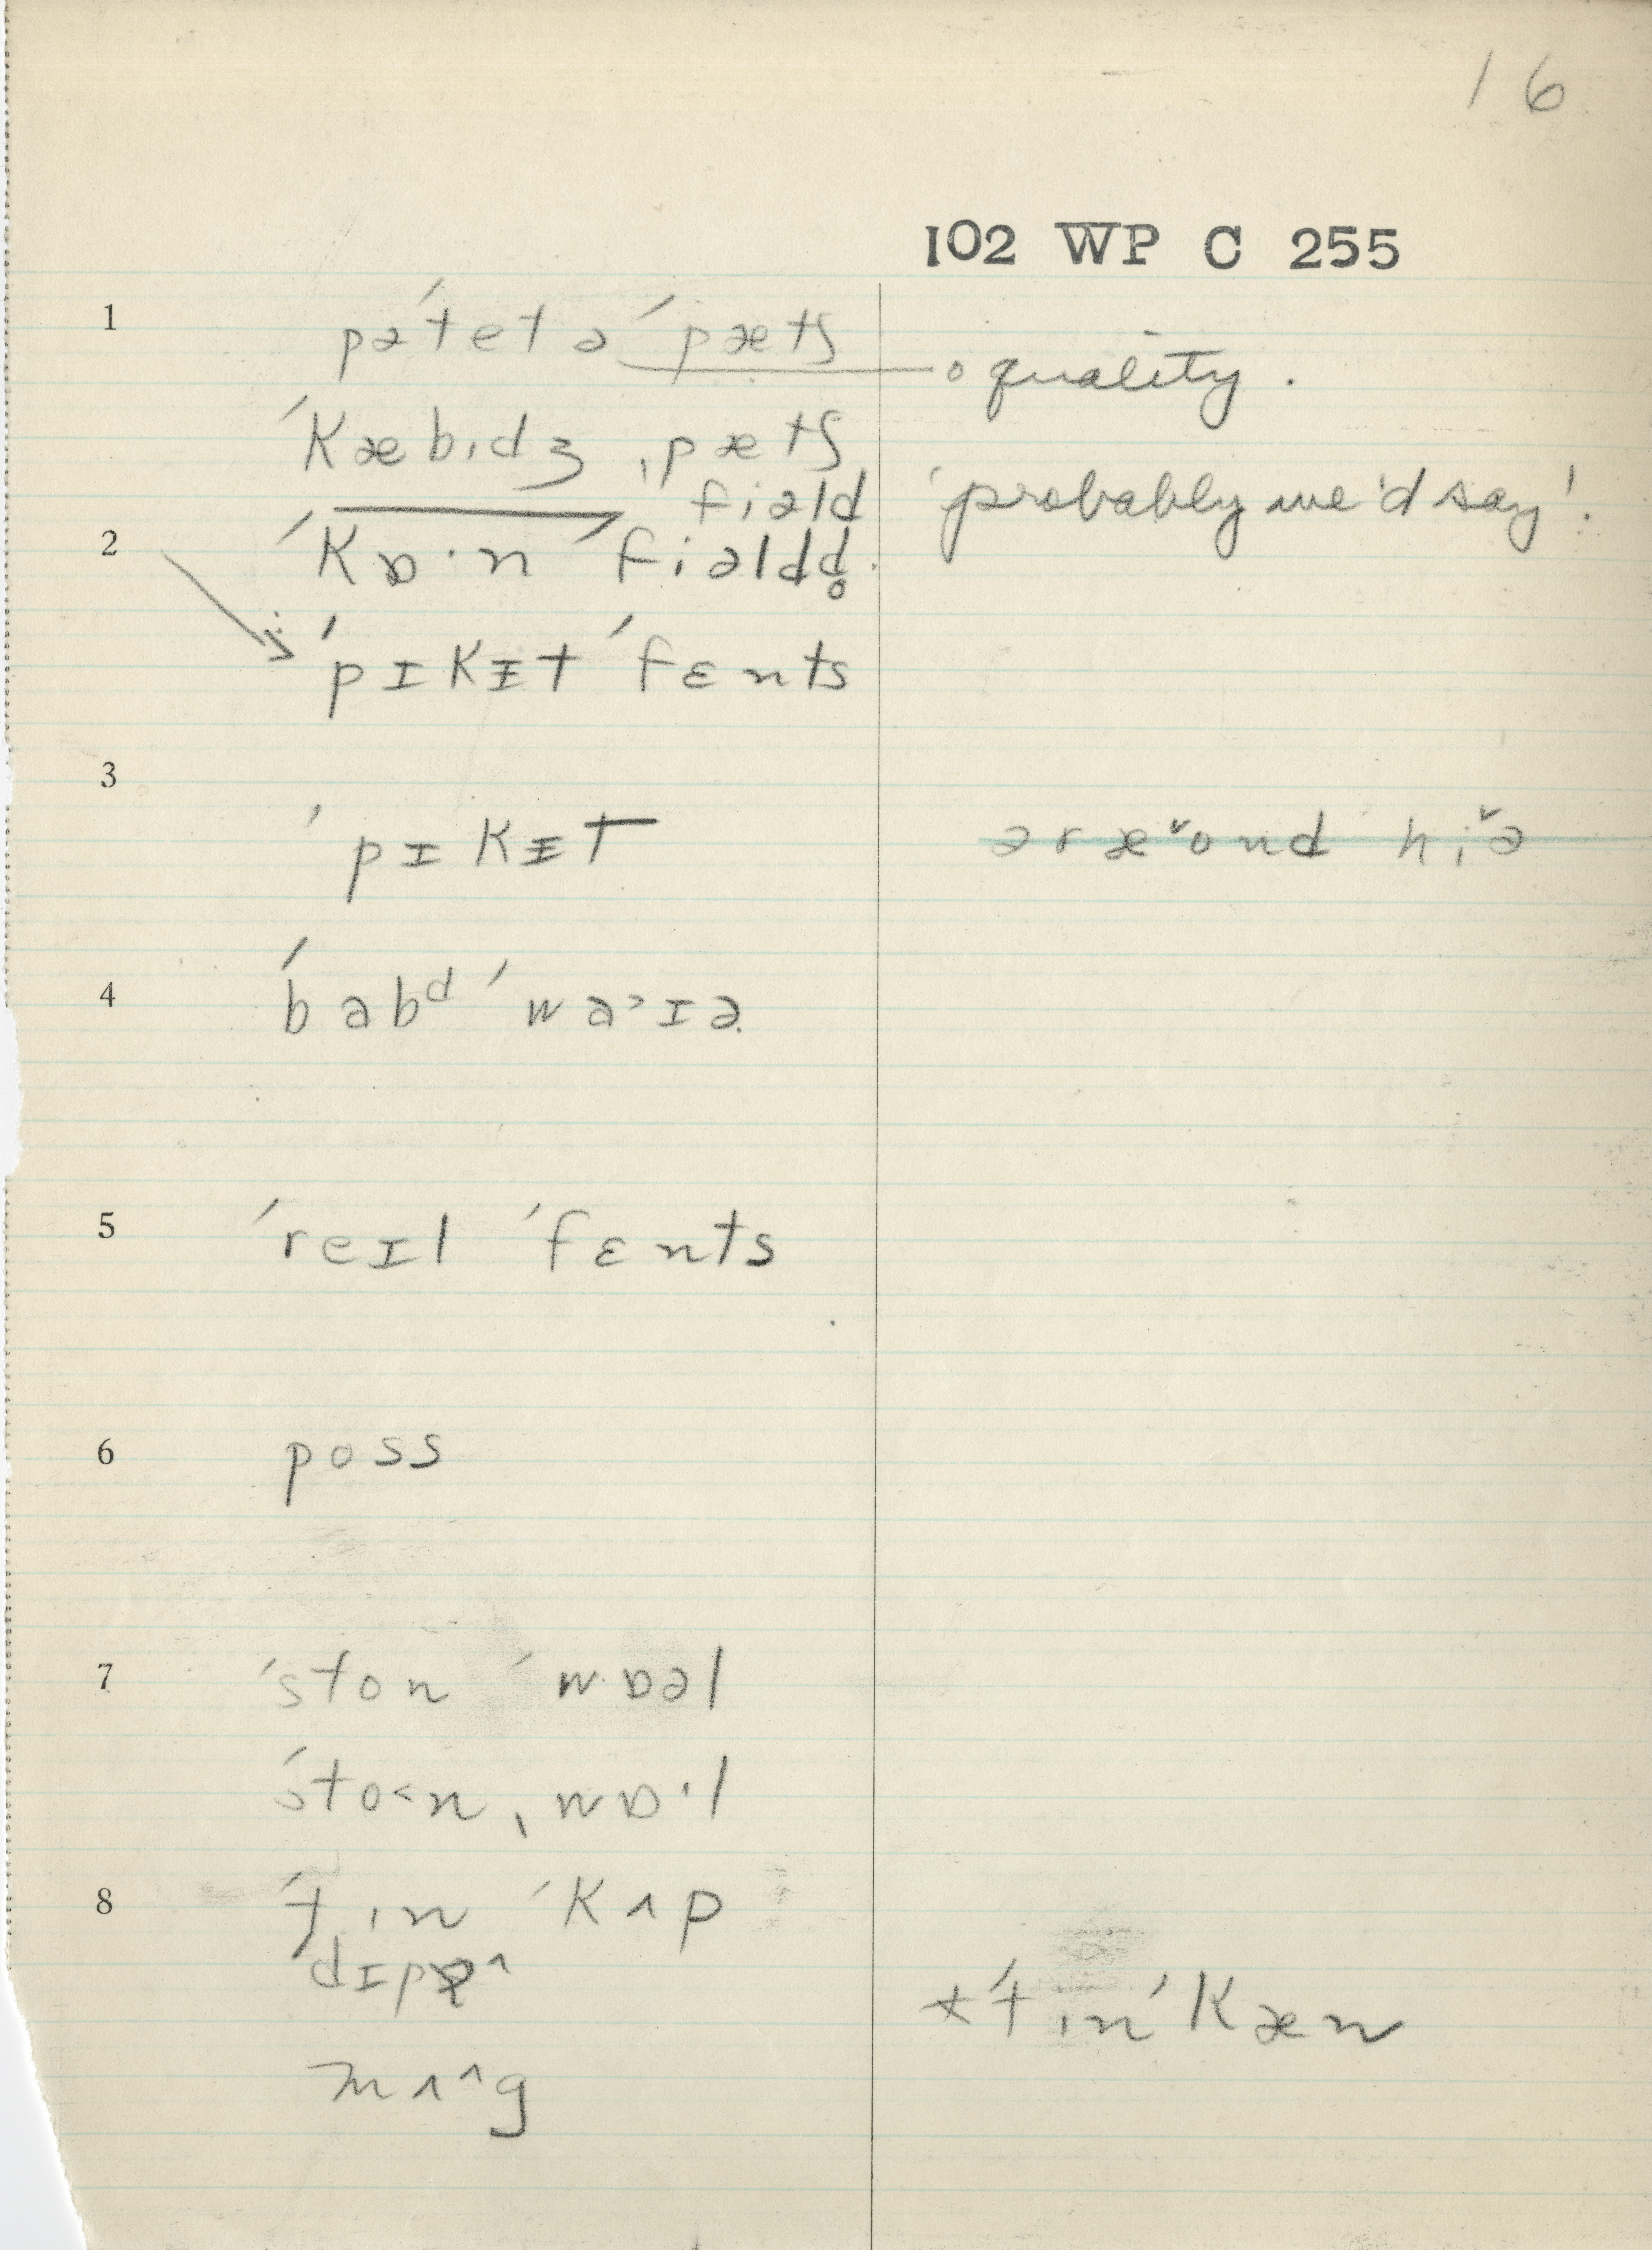 16
102 WP C 255
1 pəˈtetə ˈpætʃ o quality.
ˈkæbɪdʒ ˌpætʃ
" fiəld 'probably we'd say'.
2 ˈkɒ·n ˈfiəldd̥
ˈpɪkɪ̵t ˈfɛnts
3
ˈpɪkɪ̵t əræ˅ond hi˅ə
4 ˈbabᵈ ˈwa˃ɪə
5 ˈreɪl ˈfɛnts
6 poss
7 ˈston ˈwɒəl
ˈsto˂n ˌwɒ·l
8 ˈtin ˈkʌp
dɪpə^
*ˈtin ˈkæn
mʌ^g